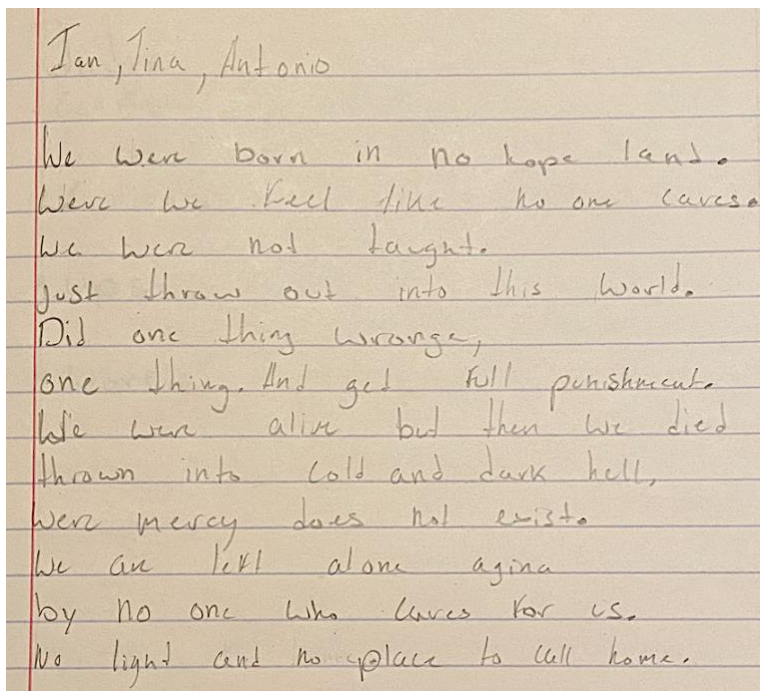 Ian, Tina, Antonio
We were born in no hope land.
Were we feel like no one cares.
We were not taught.
just throw out into this world.
Did one thing wronge,
one thing. And get full punishment.
We were alive but then we died
thrown into cold and dark hell,
were mercy does not exist.
We are left alone agina
by no one who cares for us.
No light and no place to call home.